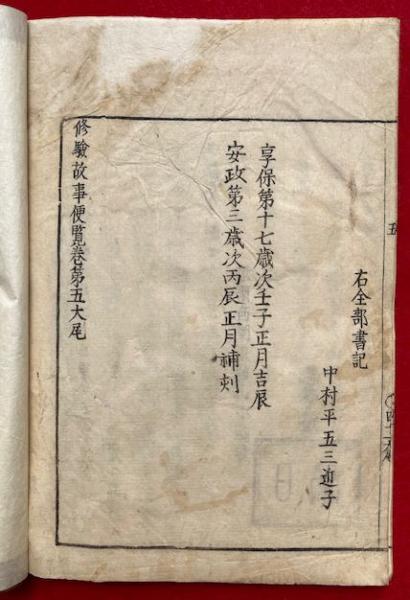 五
右全部書記
中村平五三近子
享保第十七歳次壬子正月吉辰
安政第三歳次丙辰正月補刻
修驗故事便覧巻第五大尾